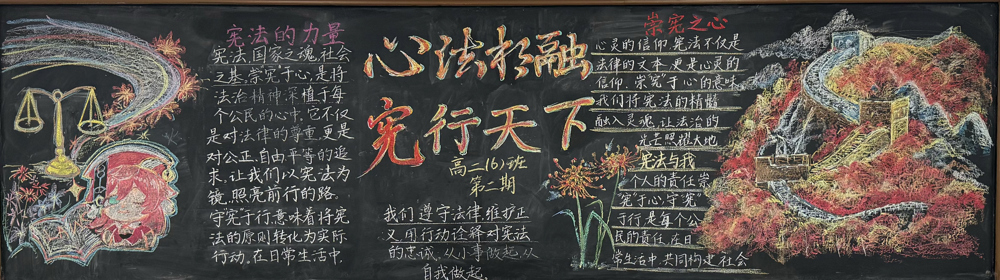 宪法的力量
宪法,国家之魂,社会
之基,崇宪于心,是将
法治精神深植于每
个公民的心中,它不仅
是对法律的尊重,更是
对公正、自由平等的追
求,让我们以宪法为
镜,照亮前行的路.
守宪于行意味着将宪
法的原则转化为实际
行动,在日常生活中.
心法相融
宪行天下
高二(6)班
第二期
我们遵守法律维护正
义,用行动诠释对宪法
的忠诚,从小事做起,从
自我做起.
崇宪之心
心灵的信仰.宪法不仅是
法律的文本,更是心灵的
信仰.崇宪"于心"的意味
我们将宪法的精髓
融入灵魂,让法治的
光芒照耀大地
宪法与我
个人的责任崇
"宪"于心,守"宪"
于行是每个公
民的责任,在日
常生活中,共同构建社会